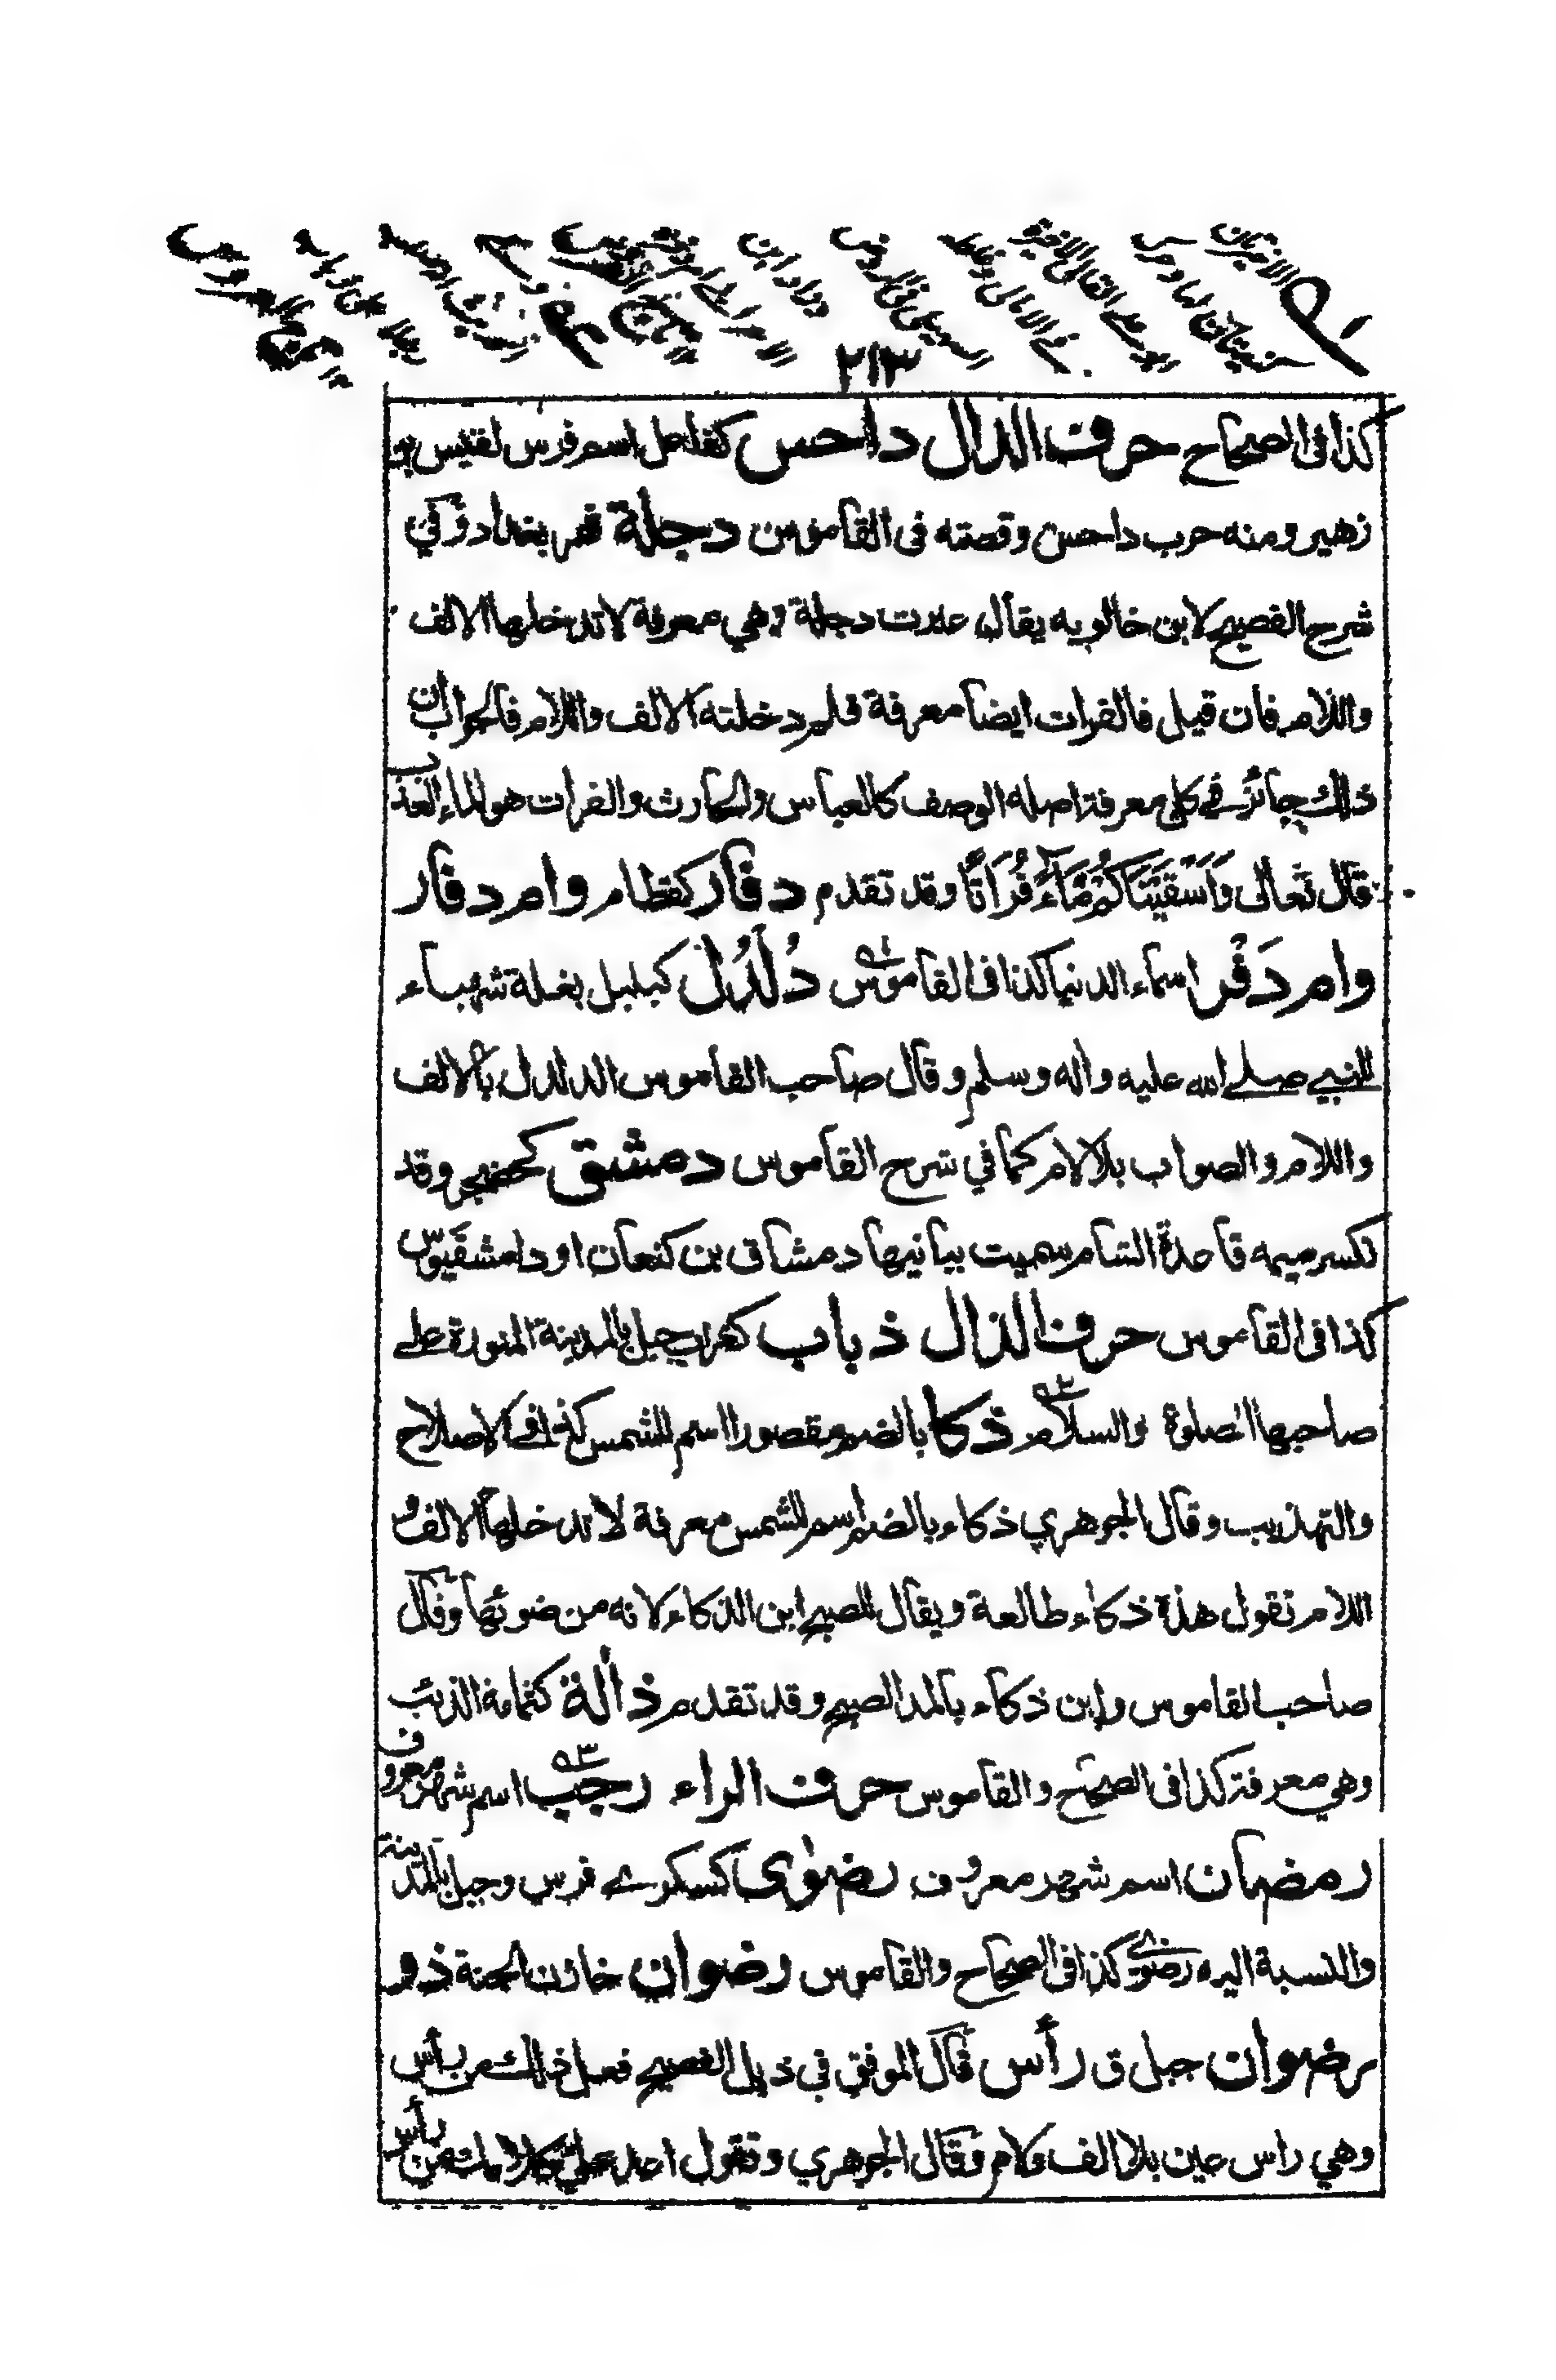 ٢١٣
كذا في الصحاح حرف الدال داحس كفاعل اسم فرس لقيس بن
زهير ومنه حرب داحس وقصته في القاموس دجلة نهر بغداد وفي
شرح الفصيح لابن خالويه يقال عبرت دجلة وهي معرفة لا تدخلها الالف
واللام فان قيل فالفرات ايضا معرفة فلم دخلته الالف واللام فالجواب ان
ذلك جائز في كل معرفة اصله الوصف كالعباس والحارث والفرات هو الماء العذب
قال تعالى وَاَسْقَيْنَاكُمْ مَّاءً فُرَاتًا وقد تقدم دفار كقطام وام دفار
وام دَفْر اسماء الدنيا كذا في القاموس دُلْدُل كبلبل بغلة شهباء
للنبي صلى الله عليه واله وسلم وقال صاحب القاموس الدلدل بالالف
واللام والصواب بلا لام كما في شرح القاموس دمشق كحضجر وقد
تكسر ميمه قاعدة الشام سميت ببانيها دمشاق بن كنعان او دامشقيوس
كذا في القاموس حرف الذال ذباب كغراب جبل بالمدينة المنورة على
صاحبها الصلوة والسلام ٩٢ ذكا بالضم مقصورا اسم للشمس كذا في الاصلاح
والتهذيب وقال الجوهري ذكاء بالضم اسم للشمس معرفة لا تدخلها الالف و
اللام تقول هذة ذكاء طالعة ويقال للصبح ابن الذكاء لانه من ضوئها وقال
صاحب القاموس وابن ذكاء بالمد الصبح وقد تقدم ذألة كثمامة الذئب
وهي معرفة كذا في الصحاح والقاموس حرف الراء رجب ٩٣ اسم شهر معروف
رمضان اسم شهر معروف رضوى كسكرے فرس وجبل بالمدينة
والنسبة اليه رضوى كذا في الصحاح والقاموس رضوان خازن الجنة ذو
رضوان جبل ق رأس قال الموفق في ذيل الفصيح فعل ذلك من رأس
وهي راس عين بلا الف ولام وقال الجوهري وتقول اعد علي كلامك من رأس